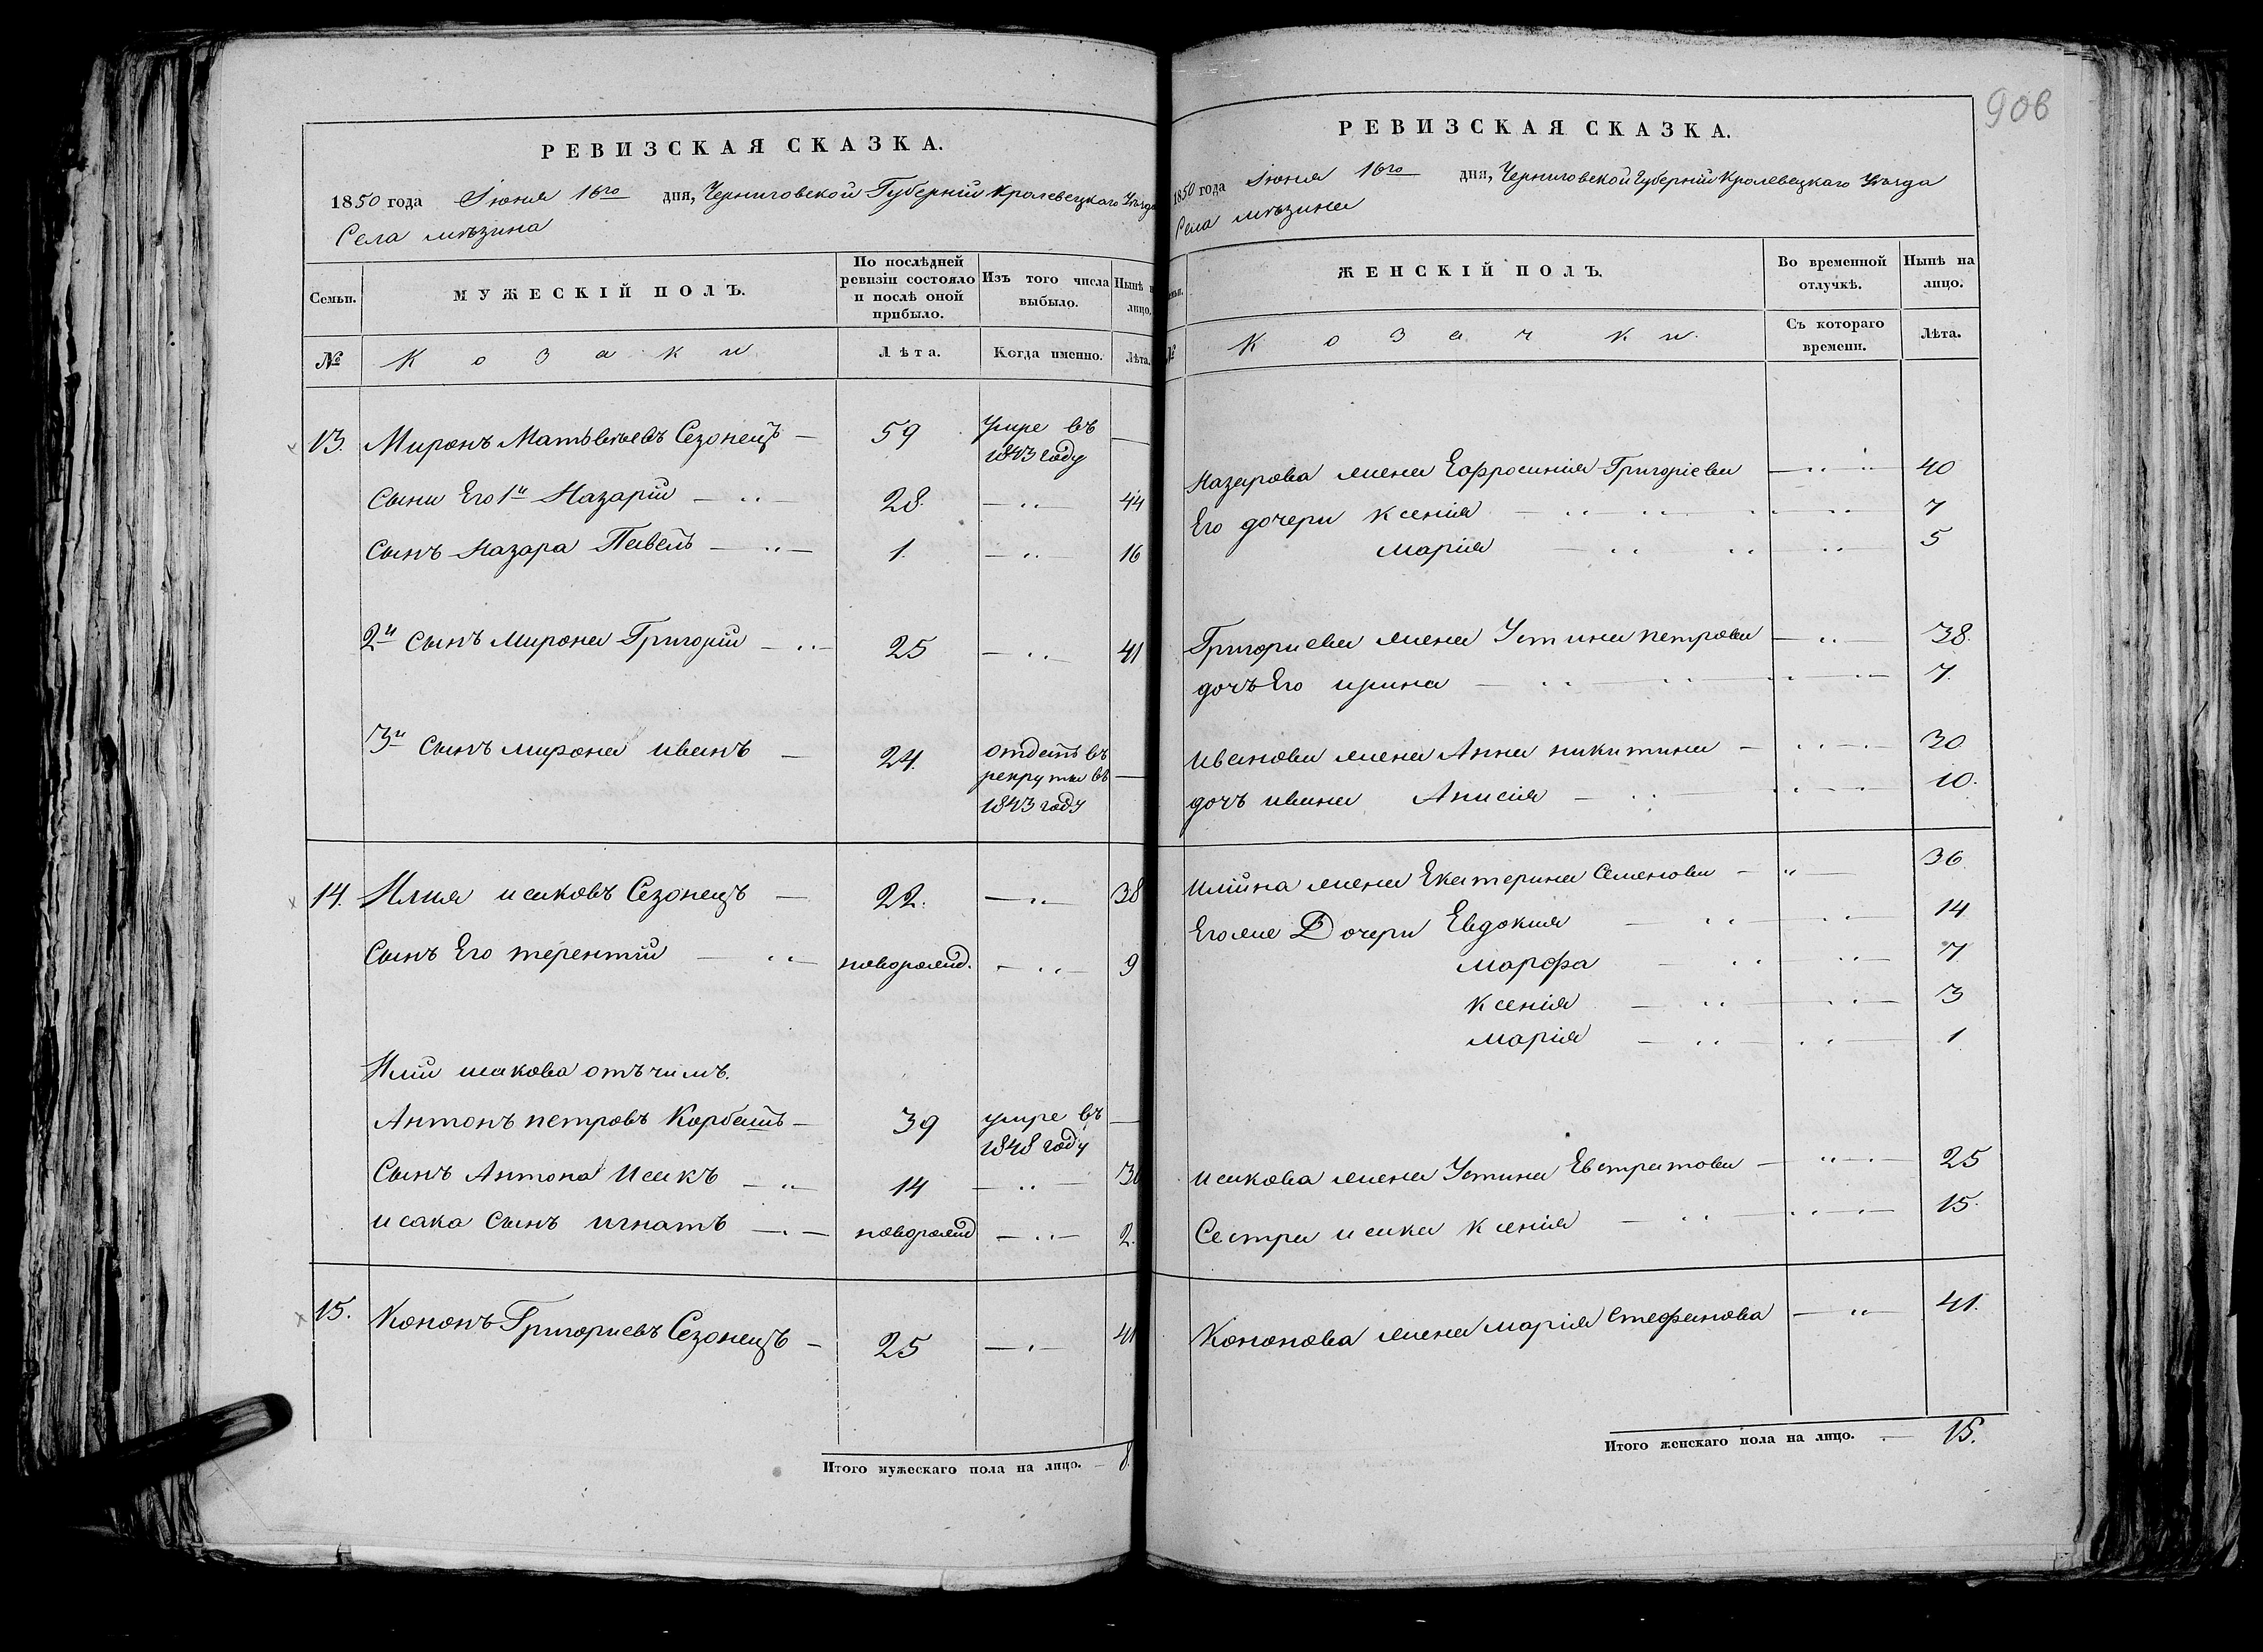 РЕВИЗСКАЯ СКАЗКА.
1850 года Іюня 16го дня, Черниговской Губерніи Кролевецкаго Уѣзда
Села мѣзина
Семьи.
МУЖЕСКІЙ ПОЛЪ.
По послѣдней ревизіи состояло и послѣ оной прибыло.
Изъ того числа выбыло.
Нынѣ на лицо.
№
Козаки
Лѣта.
Когда именно.
Лѣта.
13. Миронъ Матвѣевъ Сезонецъ — 59 умре въ 1843 году —
Сыни Его 1й Назарій — 28. — 44
Сынъ Назара Павелъ — 1. — 16
2й Сынъ Мирона Григорій — 25 — 41
3й Сынъ мирона иванъ — 24. отданъ въ рекруты въ 1843 году —
14. Илия исаковъ Сезонецъ — 22. — 38
Сынъ Его терентій — новорожд. — 9
Иліи исакова отъчимъ.
Антонъ петровъ Корбатъ — 39 умре въ 1848 году —
Сынъ Антона Исакъ — 14 — 30
исака Сынъ игнатъ — новорожд — 2.
15. Кононъ Григориевъ Сезонецъ — 25 — 41
Итого мужескаго пола на лицо. — 8.
906
РЕВИЗСКАЯ СКАЗКА.
1850 года Іюня 16го дня, Черниговской Губерніи Кролевецкаго Уѣзда
Села мѣзина
ЖЕНСКІЙ ПОЛЪ.
Во временной отлучкѣ.
Нынѣ на лицо.
№
Козачки.
Съ котораго времени.
Лѣта.
Назарова жена Ефросинія Григоріева — 40
Его дочери Ксенія — 7
Марія — 5
Григориева жена Устина петрова — 38.
дочъ Его ирина — 7.
иванова жена Анна никитина — 30
дочъ ивана Анисія — 10.
илійна жена Екатерина Семенова — 36
Его же Дочери Евдокия — 14
марфа — 7
ксенія — 3
марія — 1
исакова жена Устина Евстратова — 25
Сестра исака ксенія — 15.
Кононова жена марія стефанова — 41.
Итого женскаго пола на лицо. — 15.